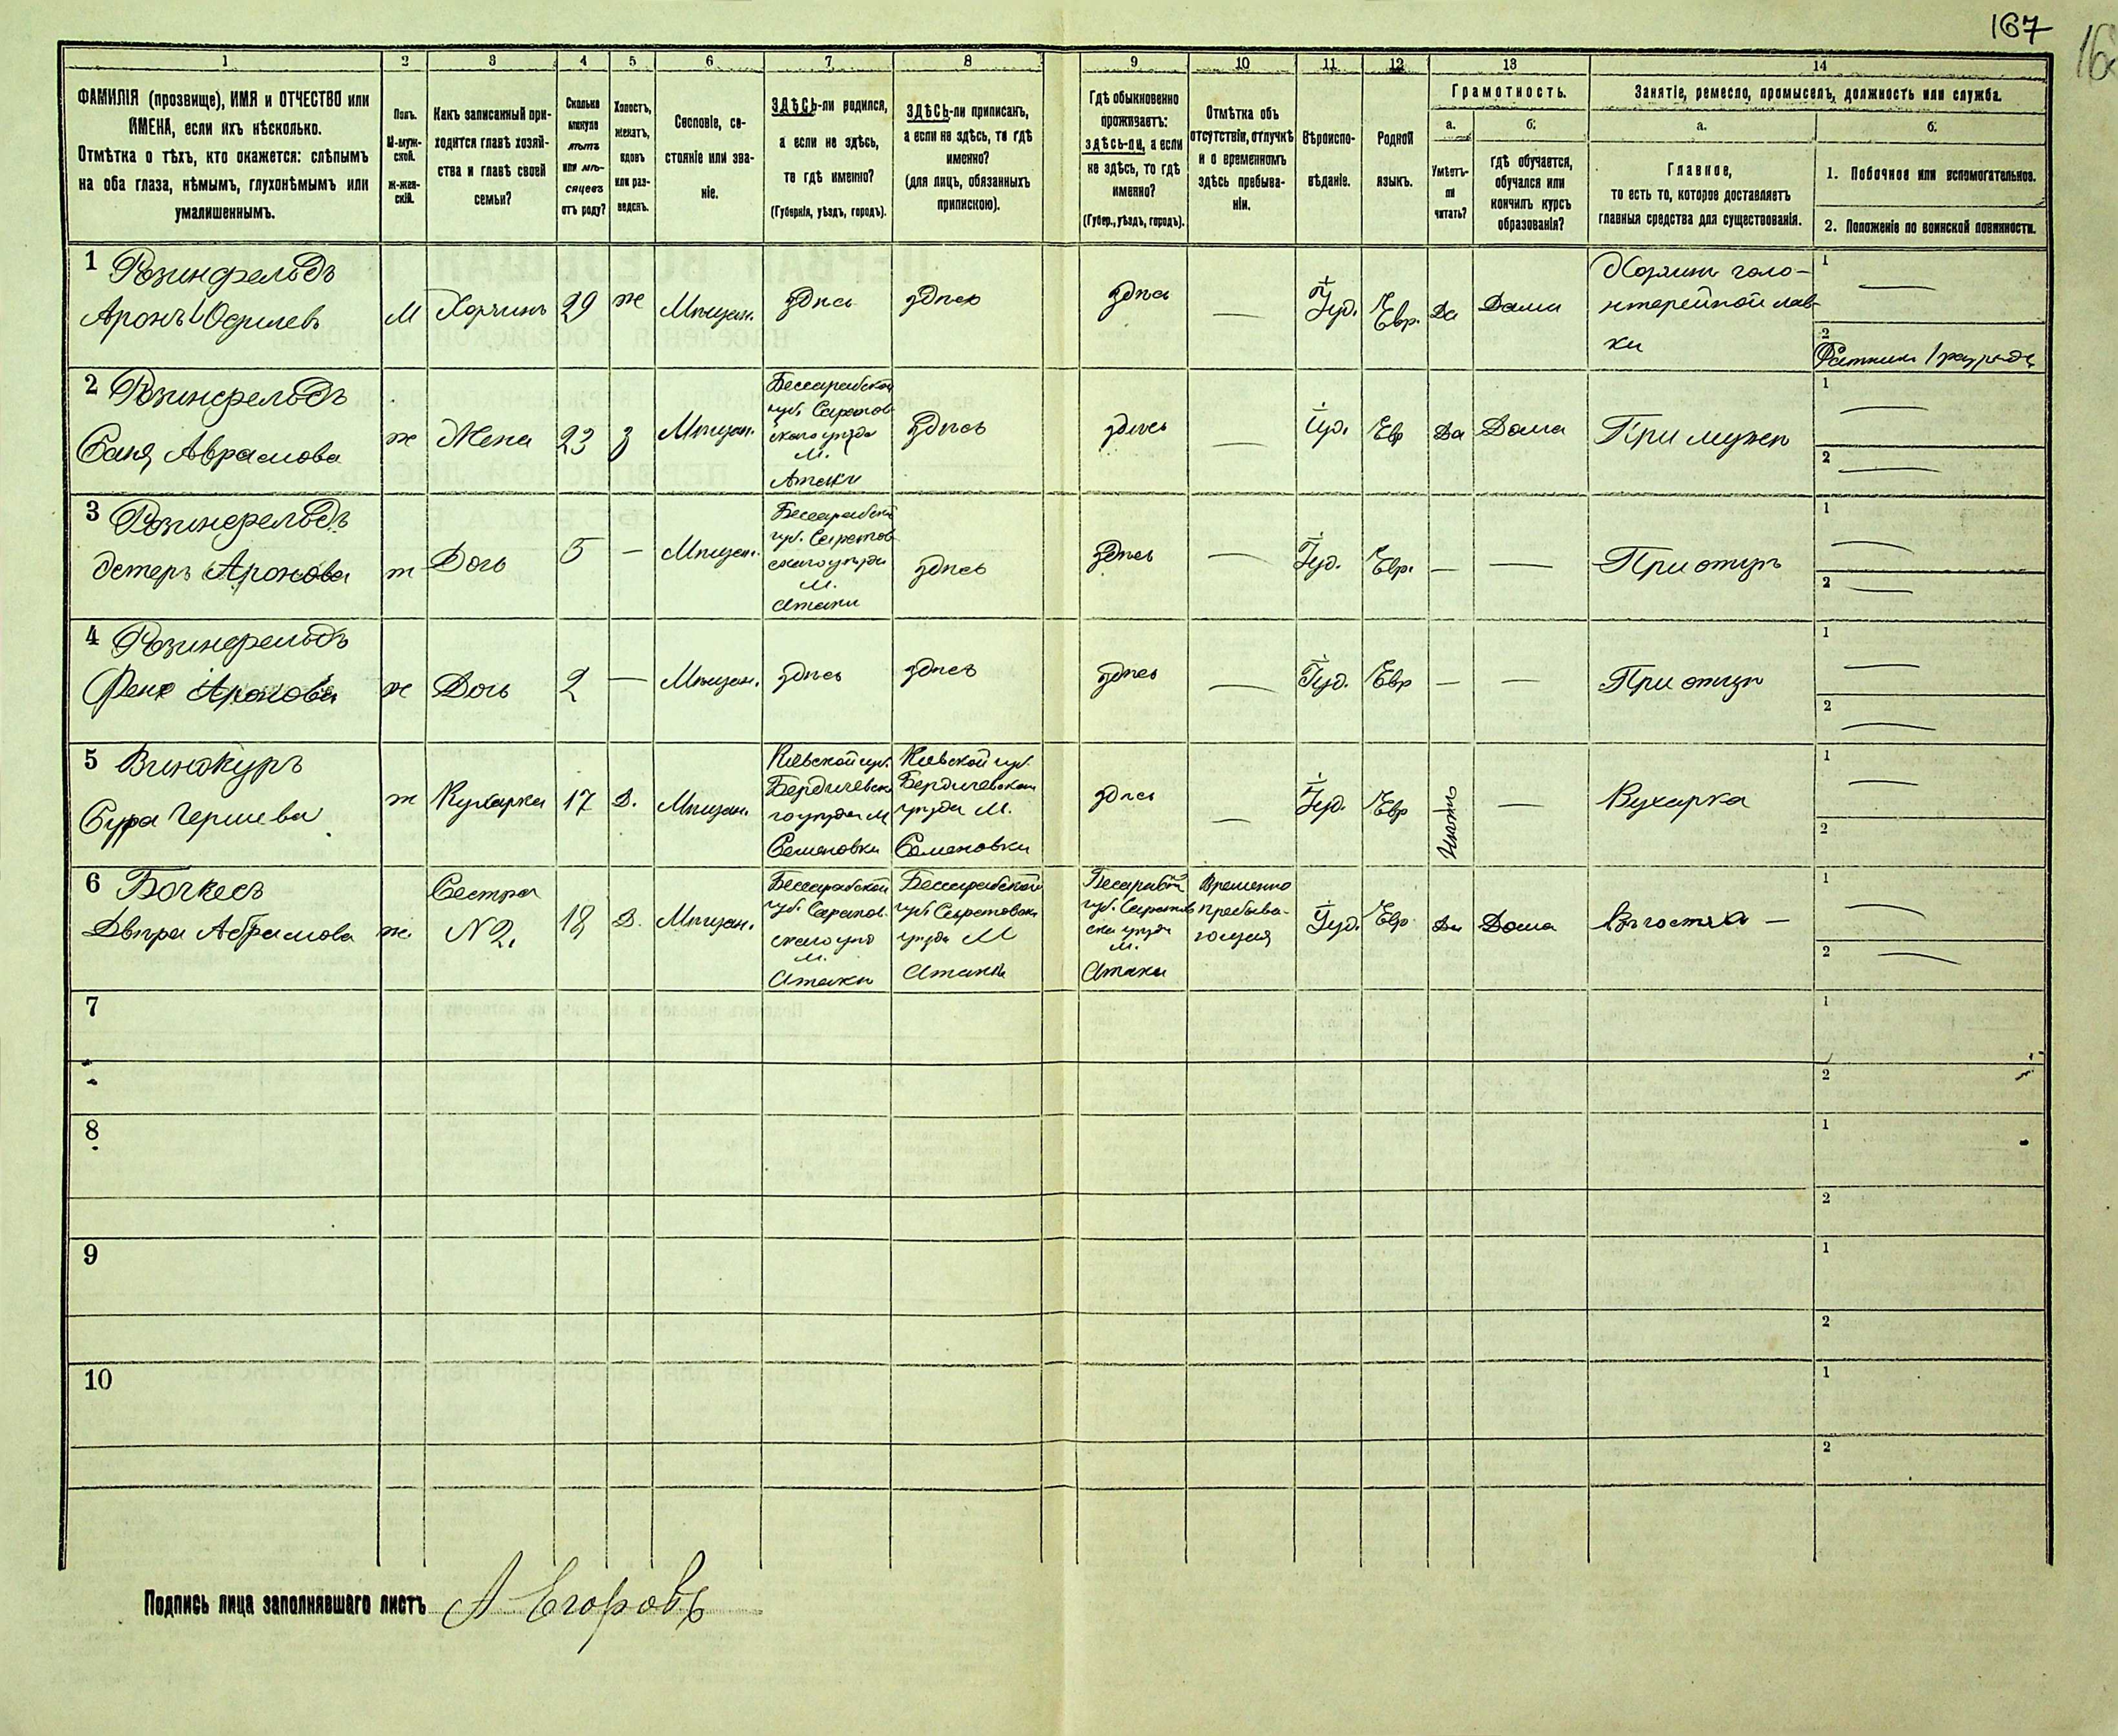 167
168
1
2
3
4
5
6
7
8
9
10
11
12
13
14
ФАМИЛІЯ (прозвище), ИМЯ и ОТЧЕСТВО или
ИМЕНА, если ихъ нѣсколько.
Отмѣтка о тѣхъ, кто окажется: слѣпымъ
на оба глаза, нѣмымъ, глухонѣмымъ или
умалишеннымъ.
Полъ.
М-муж-
ской.
Ж-жен-
скій.
Какъ записанный при-
ходится главѣ хозяй-
ства и главѣ своей
семьи?
Сколько
минуло
лѣтъ
или мѣ-
сяцевъ
отъ роду?
Холостъ,
женатъ,
вдовъ
или раз-
веденъ.
Сословіе, со-
стояніе или зва-
ніе.
ЗДѢСЬ-ли родился,
а если не здѣсь,
то гдѣ именно?
(Губернія, уѣздъ, городъ).
ЗДѢСЬ-ли приписанъ,
а если не здѣсь, то гдѣ
именно?
(для лицъ, обязанныхъ
припискою).
Гдѣ обыкновенно
проживаетъ:
здѣсь-ли, а если
не здѣсь, то гдѣ
именно?
(Губер., уѣздъ, городъ).
Отмѣтка объ
отсутствіи, отлучкѣ
и о временномъ
здѣсь пребыва-
ніи.
Вѣроиспо-
вѣданіе.
Родной
языкъ.
Грамотность.
а.
Умѣетъ-
ли
читать?
б.
гдѣ обучается,
обучался или
кончилъ курсъ
образованія?
Занятіе, ремесло, промыселъ, должность или служба.
а.
Главное,
то есть то, которое доставляетъ
главныя средства для существованія.
б.
1. Побочное или вспомогательное.
2. Положеніе по воинской повинности.
1 Розинфельдъ
Аронъ
М
29
ж
Мѣщан.
здѣсь
здѣсь
здѣсь
—
Іуд.
Евр.
Да
Дома
Хозяин гало-
нтерейной лав-
ки
1 —
2
Ратникъ 1 разряда
2 Розинфельдъ
Саня Аврамова
ж
Жена
23
з
Мѣщан.
Бессарабской
губ. Сароков-
скаго уѣзда
М.
Атаки
здѣсь
здѣсь
—
Іуд.
Евр
Да
Дома
При мужѣ
1 —
2 —
3 Розинфельдъ
Эстеръ Аронова
ж
Дочь
5
—
Мѣщан.
Бессарабской
губ. Сароков-
скаго уѣзда
М.
Атаки
здѣсь
здѣсь
—
Іуд.
Евр.
—
—
При отцѣ
1 —
2 —
4 Розинфельдъ
Аронова
ж
Дочь
2
—
Мѣщан.
здѣсь
здѣсь
здѣсь
—
Іуд.
Евр
—
—
При отцѣ
1 —
2 —
5 Винокуръ
Сура Гершева
ж
Кухарка
17
Д.
Мѣщан.
Кіевской губ.
Бердичевска-
го уѣзда М
Семеновки
Кіевской губ.
Бердичевскаго
уѣзда М.
Семеновки
здѣсь
—
Іуд.
Евр
—
Кухарка
1 —
2
6 Бочкесъ
Двейра Абрамова
ж.
Сестра
№ 2.
18
Д.
Мѣщан.
Бессарабской
губ. Сароков-
скаго уѣз
М.
Атаки
Бессарабской
губ. Сароковск.
уѣзда М
Атаки
губ.
уѣзда
М.
Атаки
Временно
пребыва-
ющая
Іуд.
Евр
Да
Дома
Въ гостяхъ —
1 —
2 —
7
1
2
8
1
2
9
1
2
10
1
2
Подпись лица заполнявшаго листъ А Егоровъ